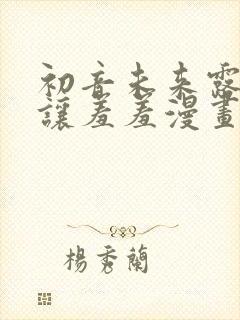 初音未来露
讓羞羞漫畫
楊秀蘭